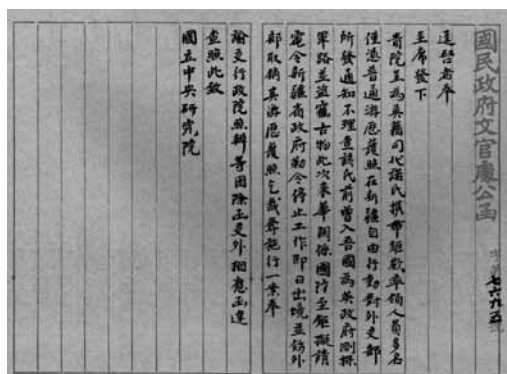 國民政府文官處公函
字第七六九五號
逕啓者奉
主席發下
貴院呈為英籍司代諾氏携帶鉅欵率領人員多名
僅憑普通游歷護照在新疆自由行動對外交部
所發通知不理查該氏前曾入吾國為英政府測探
軍路並盜竊古物此次來華關係國防至鉅擬請
電令新疆省政府勒令停止工作即日出境並飭外
部取銷其游歷護照乞裁奪施行一案奉
諭交行政院照辦等因除函交外相應函達
查照此致
國立中央研究院